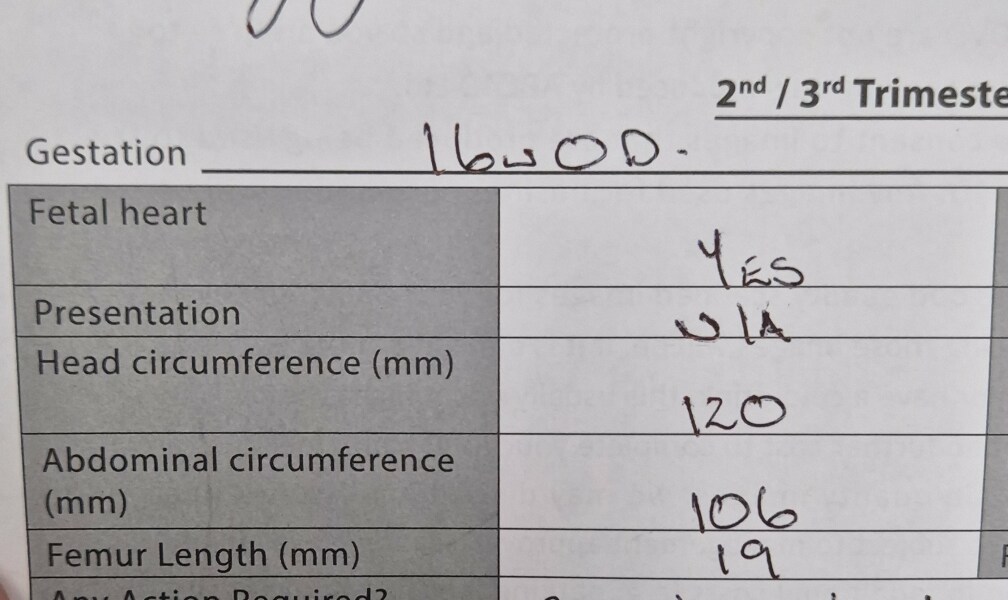 2nd / 3rd Trimeste
Gestation 16w 0D.
Fetal heart YES
Presentation N/A
Head circumference (mm) 120
Abdominal circumference
(mm) 106
Femur Length (mm) 19
Any Action Required?